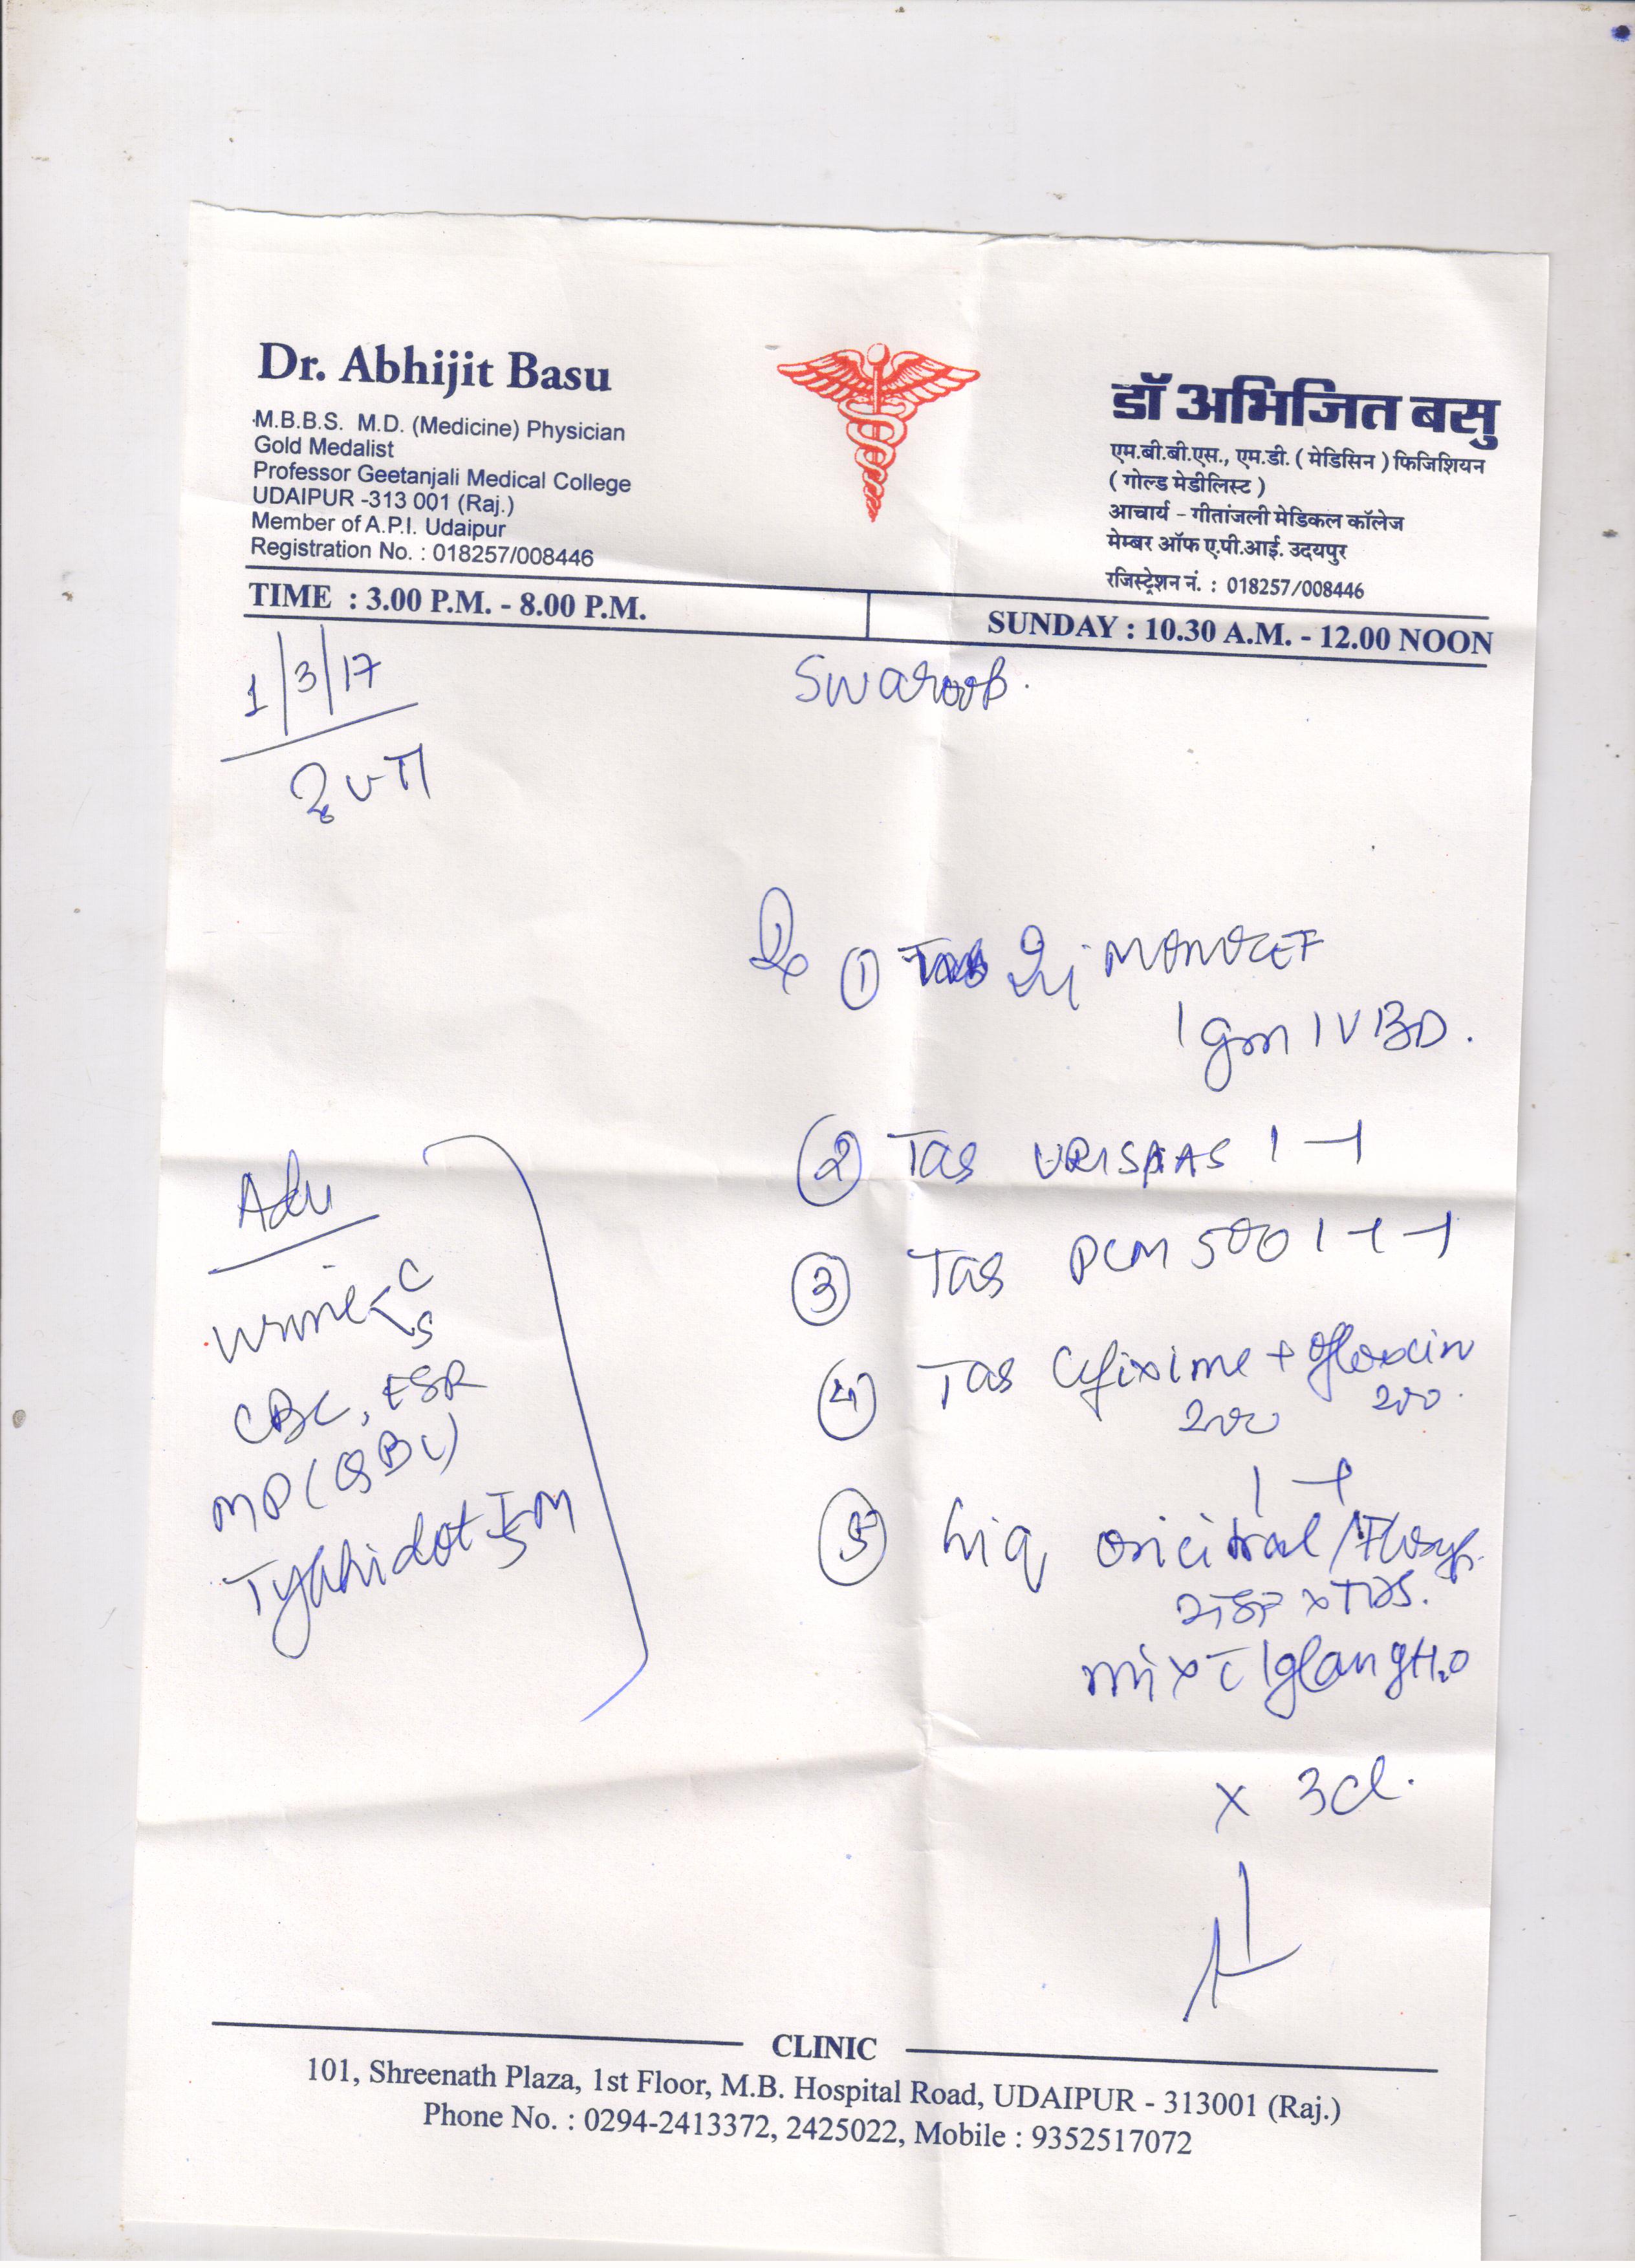 Dr. Abhijit Basu
M.B.B.S. M.D. (Medicine) Physician
Gold Medalist
Professor Geetanjali Medical College
UDAIPUR -313 001 (Raj.)
Member of A.P.I. Udaipur
Registration No. : 018257/008446
डॉ अभिजित बसु
एम.बी.बी.एस., एम.डी. ( मेडिसिन ) फिजिशियन
( गोल्ड मेडीलिस्ट )
आचार्य - गीतांजली मेडिकल कॉलेज
मेम्बर ऑफ ए.पी.आई. उदयपुर
रजिस्ट्रेशन नं. : 018257/008446
TIME : 3.00 P.M. - 8.00 P.M.
SUNDAY : 10.30 A.M. - 12.00 NOON
1/3/17
Swaroop.
UTI
Rx ① Inj MONOCEF
1 gm IV BD.
② Tab URISPAS 1 - 1
③ Tab PCM 500 1 - 1 - 1
④ Tab Cefixime + Ofloxcin
200 200
1 - 1
⑤ Liq oricitral /
2 TSP x TDS.
mix c 1 glan g H2O
x 3d.
Adv
Urine C
S
CBC, ESR
MP (QBC)
Typhidot IgM
CLINIC
101, Shreenath Plaza, 1st Floor, M.B. Hospital Road, UDAIPUR - 313001 (Raj.)
Phone No. : 0294-2413372, 2425022, Mobile : 9352517072